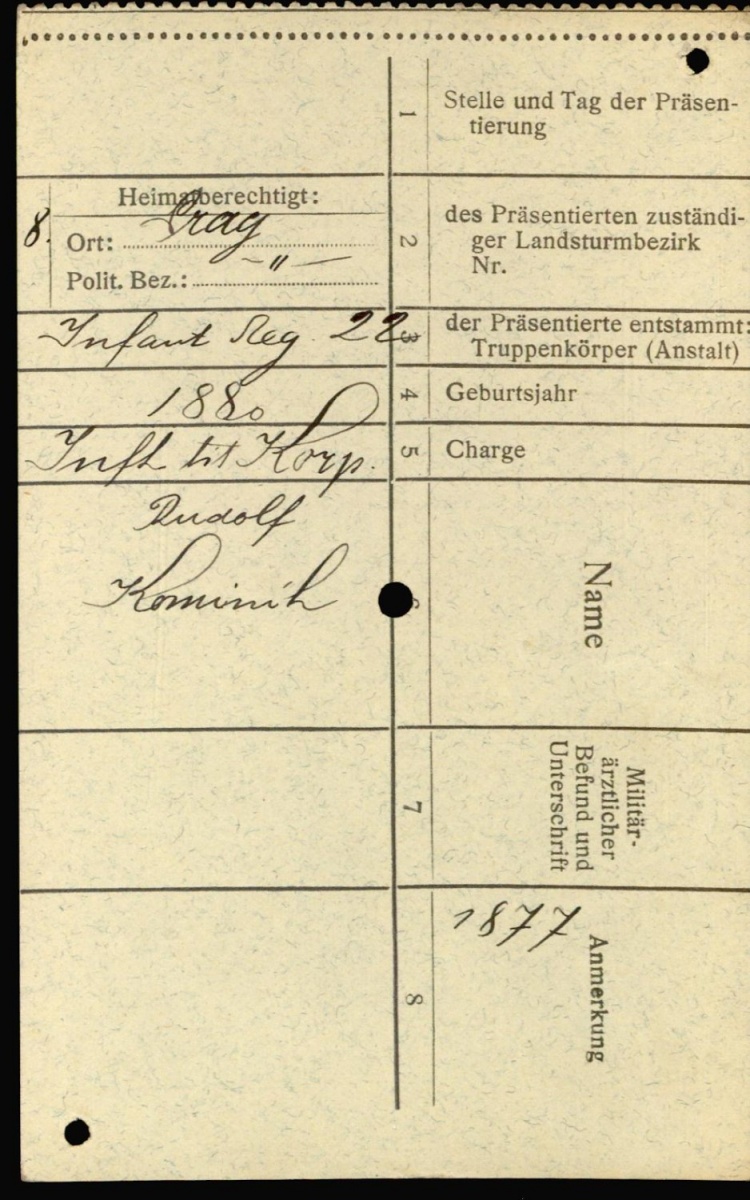 1
Stelle und Tag der Präsen-
tierung
8.
Heimatberechtigt:
Ort: Prag
Polit. Bez.: - " -
2
des Präsentierten zuständi-
ger Landsturmbezirk
Nr.
Infant Reg. 22
3
der Präsentierte entstammt:
Truppenkörper (Anstalt)
1880
4
Geburtsjahr
Inft tit Korp.
5
Charge
Rudolf
Kominik
6
Name
7
Militär-
ärztlicher
Befund und
Unterschrift
8
1877
Anmerkung